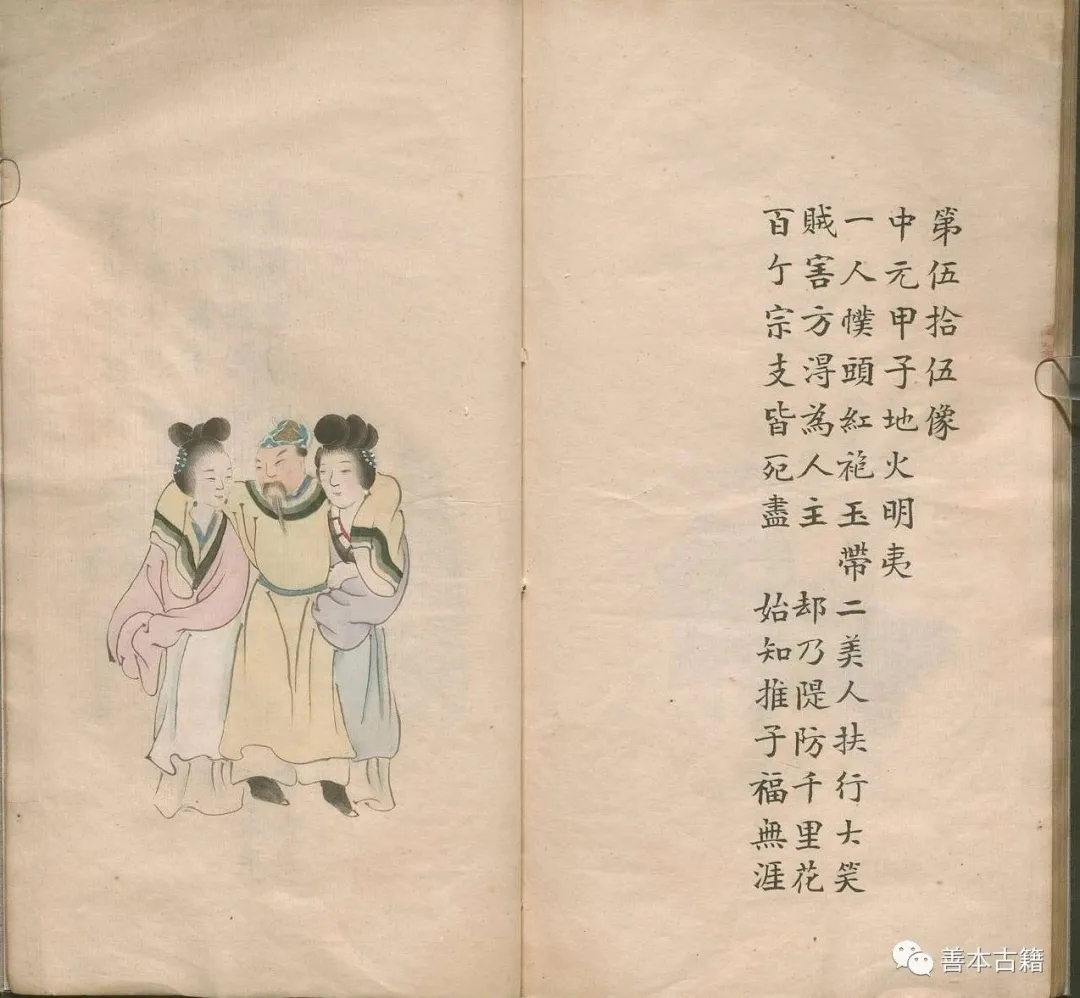 第伍拾伍像
中元甲子地火明夷
一人幞頭紅袍玉帶二美人扶行大笑
賊害方得為人主　却乃隄防千里花
百亇宗支皆死盡　始知推子福無涯
善本古籍